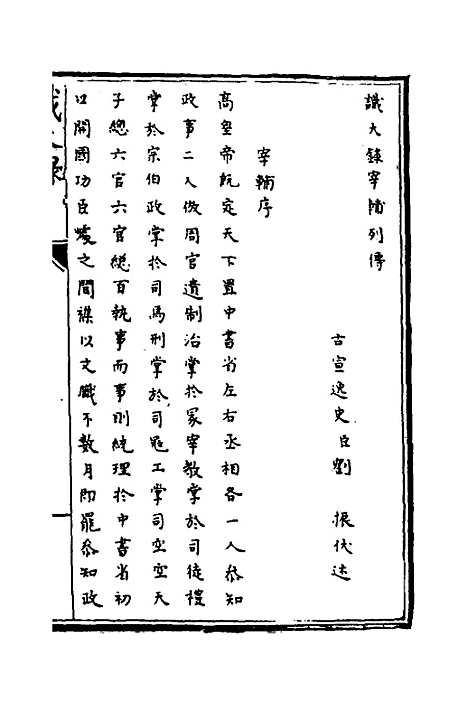 識大錄宰輔列傳
古宣逸史臣劉 振伏述
宰輔序
高皇帝既定天下置中書省左右丞相各一人叅知
政事二人倣周官遺制治掌於冢宰教掌於司徒禮
掌於宗伯政掌於司馬刑掌於司寇工掌司空空天
子總六官六官總百執事而事則統理於中書省初
以開國功臣爕之間襍以文職不數月即罷叅知政